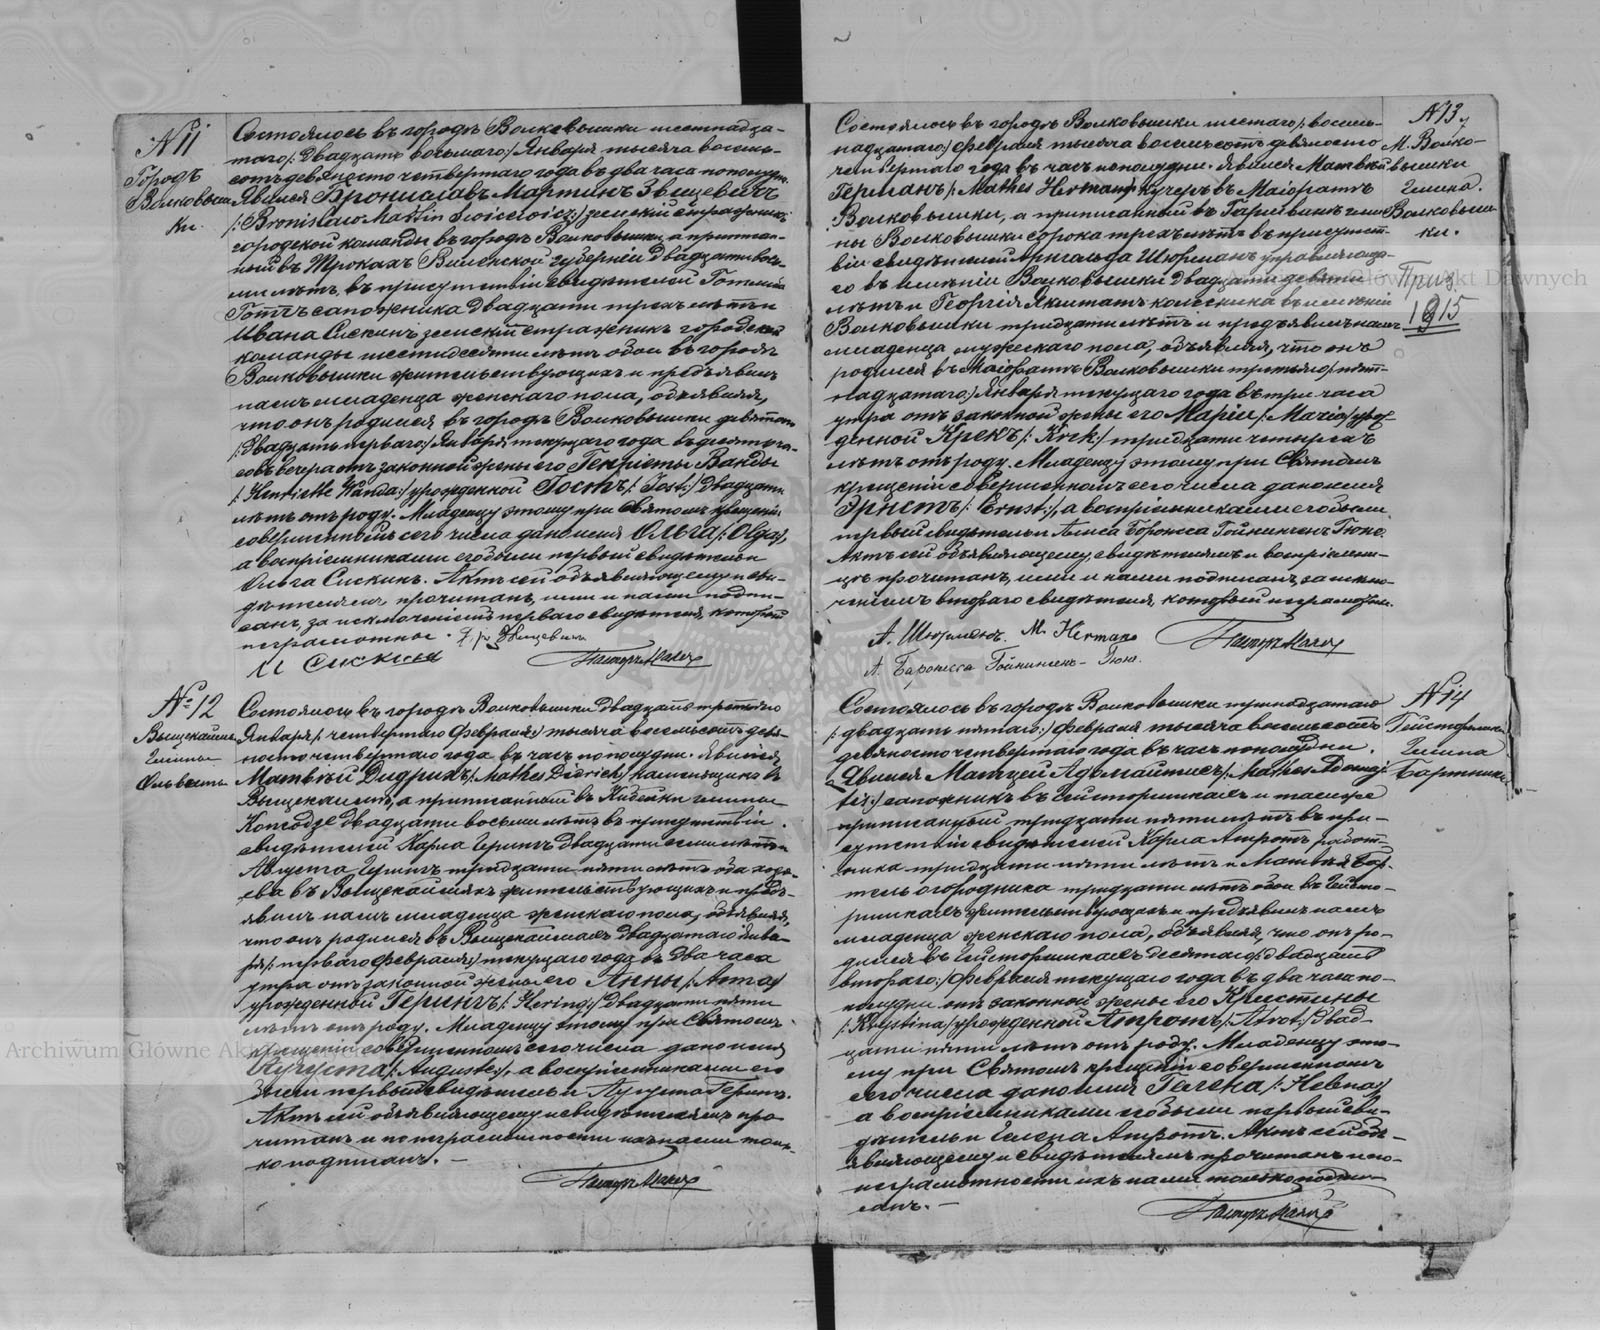 N 11
Городъ
Волковыш
ки.
Состоялось въ городѣ Волковышки шестнадца-
таго /: двадцать восьмаго :/ Января тысяча восемь-
сотъ девяносто четвертаго года въ два часа пополудни.
Явился Брониславъ Мартинъ Звицевичъ
/: Bronislaw Martin Swicewicz :/ земскій стражникъ
городской команды въ городѣ Волковышки, а приписан-
ный въ Трокахъ Виленской губерніи двадцати вось-
ми лѣтъ, въ присутствіи свидѣтелей Готлиба
Готтъ сапожника двадцати трехъ лѣтъ и
Ивана Сискинъ земскій стражникъ городской
команды шестидесяти лѣтъ обои въ городѣ
Волковышки жительствующихъ и предъявилъ
намъ младенца женскаго пола, объявляя,
что онъ родился въ городѣ Волковышки девятаго
/: двадцать перваго :/ Января текущаго года въ десять ча-
совъ вечера отъ законной жены его Генріеты Ванды
/: Henriette Wanda :/ урожденной Тостъ /: Tost :/ двадцати
лѣтъ отъ роду. Младенцу этому при Святомъ крещеніи
совершенномъ сего числа дано имя Ольга /: Olga :/,
а воспріемниками его были первый свидѣтель и
Ольга Сискинъ. Актъ сей объявляющему и сви-
дѣтелямъ прочитанъ, ими и нами подпи-
санъ, за исключеніемъ перваго свидѣтеля, который
неграмотные.
И Сискинъ
Пасторъ
N 12
Выщекаймъ
Гмины
Ольвита
Состоялось въ городѣ Волковышки двадцать третьяго
Января /: четвертаго Февраля :/ тысяча восемьсотъ девя-
носто четвертаго года въ часъ пополудни. Явился
Матвѣй Дидрихъ /: Mathes Didrich :/ каменщикъ въ
а приписанный въ Кибейки гмины
двадцати восьми лѣтъ въ присутствіи
свидѣтелей Карла Герингъ двадцати семи лѣтъ и
Августа Герингъ тридцати пяти лѣтъ оба хозя-
ева въ жительствующихъ и предъ-
явилъ намъ младенца женскаго пола, объявляя,
что онъ родился въ двадцатаго Янва-
ря /: перваго Февраля :/ текущаго года въ два часа
утра отъ законной жены его Анны /: Anna :/
урожденной Герингъ /: Hering :/ двадцати пяти
лѣтъ отъ роду. Младенцу этому при Святомъ
крещеніи совершенномъ сего числа дано имя
Августа /: Auguste :/, а воспріемниками его
были первый свидѣтель и Августа Герингъ.
Актъ сей объявляющему и свидѣтелямъ про-
читанъ и по неграмотности ихъ нами толь-
ко подписанъ. —
Пасторъ
N 13
М. Волко-
вышки
Гмина
Волковыш-
ки.
Приз
1915
Состоялось въ городѣ Волковышки шестаго /: восемь-
надцатаго :/ Февраля тысяча восемьсотъ девяносто
четвертаго года въ часъ пополудни. Явился Матвѣй
Германъ /: Mathes Herman :/ кучеръ въ Маіоратѣ
Волковышки, а приписанный въ гми-
ны Волковышки сорока трехъ лѣтъ въ присутст-
віи свидѣтелей Арнгольда Шюрманъ управляюща-
го въ имѣніи Волковышки двадцати девяти
лѣтъ и Георгія Якштатъ колесника въ имѣніи
Волковышки тридцати лѣтъ и предъявилъ намъ
младенца мужескаго пола, объявляя, что онъ
родился въ Маіоратѣ Волковышки третьяго /: пят-
надцатаго :/ Января текущаго года въ три часа
утра отъ законной жены его Маріи /: Maria :/ урож-
денной Крекъ /: Krek :/ тридцати четырехъ
лѣтъ отъ роду. Младенцу этому при Святомъ
крещеніи совершенномъ сего числа дано имя
Эрнстъ /: Ernst :/, а воспріемниками его были
первый свидѣтель и Алиса Баронесса Гойнингенъ Гюне.
Актъ сей объявляющему, свидѣтелямъ и воспріемни-
цѣ прочитанъ, ими и нами подписанъ, за исклю-
ченіемъ втораго свидѣтеля, который неграмотны.
А. Шюрманъ. M. Herman
Пасторъ
А. Баронесса Гойнингенъ-Гюне.
N 14
Гейсторишки
Гмина
Бартники
Состоялось въ городѣ Волковышки тринадцатаго
/: двадцать пятаго :/ Февраля тысяча восемьсотъ
девяносто четвертаго года въ часъ пополудни.
Явился Матвей Адомайтисъ /: Mathes Adomaj-
tis :/ сапожникъ въ Гейсторишкахъ и тамже
приписанный тридцати пяти лѣтъ въ при-
сутствіи свидѣтелей Карла Атротъ работ-
ника тридцати пяти лѣтъ и Матвѣя
огородника тридцати лѣтъ обои въ Гейсто-
ришкахъ жительствующихъ и предъявилъ намъ
младенца женскаго пола, объявляя, что онъ ро-
дился въ Гейсторишкахъ десятаго /: двадцать
втораго :/ Февраля текущаго года въ два часа по-
полудни отъ законной жены его Кристины
/: Krystina :/ урожденной Атротъ /: Atrot :/ двад-
цати пяти лѣтъ отъ роду. Младенцу это-
му при Святомъ крещеніи совершенномъ
сего числа дано имя Гелена /: Helena :/
а воспріемниками его были первый сви-
дѣтель и Гелена Атротъ. Актъ сей объ-
являющему и свидѣтелямъ прочитанъ и по
неграмотности ихъ нами только подпи-
санъ. —
Пасторъ
Archiwum Główne Akt Dawnych
Archiwum Główne Ak